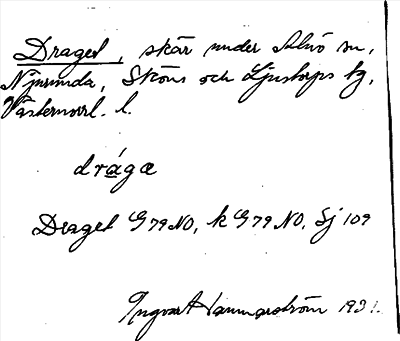 Draget, skär under Alnö sn,
Njurunda, Sköns och Ljustorps tg,
Västernorrl. l.
drágæ
Draget G79NO, k G79 NO, Sj 109
Ingvar Hammarström 1931.